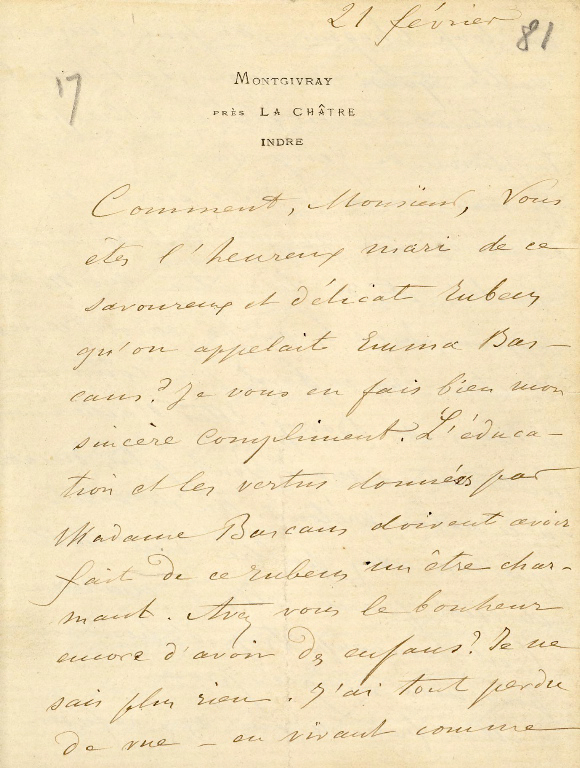 21 février
81
17
MONTGIVRAY
PRÈS LA CHÂTRE
INDRE
Comment, Monsieur, Vous
êtes l'heureux mari de ce
savoureux et délicat rubens
qu'on appelait Emma Bas-
cans? Je vous en fais bien mon
sincère compliment. L'éduca-
tion et les vertus données par
Madame Bascans doivent avoir
fait de ce rubens un être char-
mant. Avez vous le bonheur
encore d'avoir des enfans? Je ne
sais plus rien. J'ai tout perdu
de vue - en vivant comme